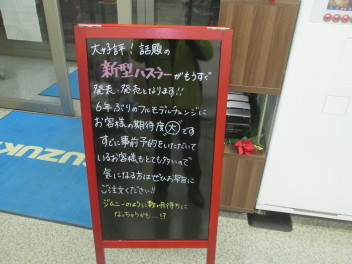 大好評！話題の
新型ハスラーがもうすぐ
発表、発売となります!!
6年ぶりのフルモデルチェンジに
お客様の期待度大です
すでに事前予約をいただいて
いるお客様もとても多いので
気になる方はぜひお早目に
ご注文ください!!
ジムニーのように数ヶ月待ちに
なっちゃうかも…!?
UZUK